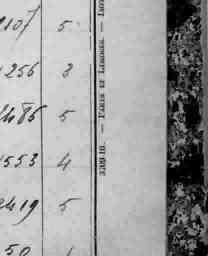 107 5
256 3
485 5
553 4
419 5
50
3309-10. — PARIS ET LIMOGES. — IMP